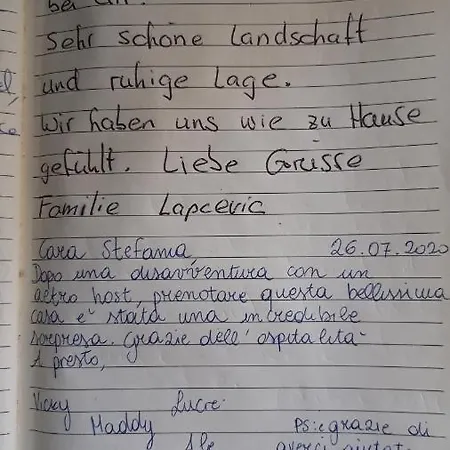 bei
Sehr schöne Landschaft
und ruhige Lage.
Wir haben uns wie zu Hause
gefühlt. Liebe Grüsse
Familie Lapcevic
Cara Stefania, 26.07.2020
Dopo una disavventura con un
altro host, prenotare questa bellissima
casa e' stata una incredibile
sorpresa. Grazie dell'ospitalita-
A presto,
Vicky Lucre
Maddy PS: grazie di
Ale averci aiutat